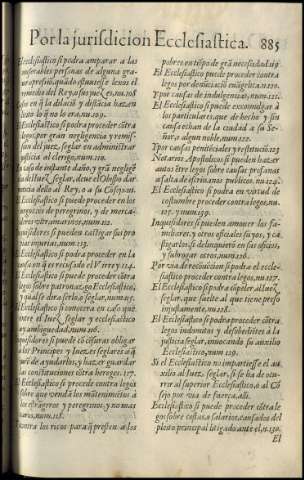 Por la jurisdicion Ecclesiastica. 885
El Ecclesiastico si podra amparar a las
miserables personas de alguna gra-
ue opresion, quãdo estuuiesse lexos el
remedio del Rey, a sus juezes, nu. 108
lo no era, nu. 109.
El Ecclesiastico si podra proceder cõtra
legos por gran negligencia y remis-
sion del juez seglar en administrar
justicia al clerigo, num. 110.
del juez seglar, deue el Obispo dar
noticia dello al Rey, o a su Cõsejo. ni.
El Ecclesiastico si puede proceder en los
negocios de peregrinos, y de merca-
deres vltramarinos, num. 112.
Inquisidores si pueden castigar sus pro
prias injurias, num. 113.
El Ecclesiastico si podra proceder en la
El Ecclesiastico si puede proceder cõtra
legos sobre patronazgo Ecclesiastico,
y qual se dira serlo, o seglar, num. 115.
El Ecclesiastico si conocera en caso que
entre el Iuez seglar y ecclesiastico
ay ambiguedad, num. 116.
Inquisidores si puede cõ censuras obligar
a los Principes y Iuezes seglares a q̃
las constituciones contra hereges. 117.
El Ecclesiastico si procede contra legos
sobre que vendã los mantenimiẽtos a
los estrangeros y peregrinos, y no mas
caros, num. 118.
contra los ricos para q̃ presten a los
pobres en tiẽpo de grã necessidad. 119
El Ecclesiastico puede proceder contra
legos por denunciaciõ euãgelica. n. 120.
Y por causas de indignidad, nu. 121.
El Ecclesiastico si puede excomulgar à
los particulares, que de hecho y sin
causa echan de la ciudad a su Se-
ñor a algun noble, num. 122.
Y por causas penitẽciales y restituciõ. 123
Notarios Apostolicos si pueden hazer
autos ẽtre legos sobre causas profanas
a falta de escriuanos publicos, nu. 124.
El Ecclesiastico si podra en virtud de
costumbre proceder contra legos, nu.
125. y num. 199.
Inquisidores si pueden amouer los fa-
miliares, y otros oficiales suyos, y ca
stigarlos, si delinquierõ en sus oficios,
y subrogar otros, num. 126.
Por via de recõuencion si podra el eccle-
siastico proceder contra legos, nu. 127.
El Ecclesiastico si podra cõpeler al Iuez
seglar, que suelte al que tiene preso
injustamente, nu. 128.
El Ecclesiastico si podra proceder cõtra
legos indomitos y desobedietes à la
justicia seglar, inuocando su auxilio
Ecclesiastico, num. 129.
Si el Ecclesiastico no impartiesse el au
xilio al Iuez seglar, si se ha de ocu-
rrir al superior Ecclesiastico, o al Cõ
sejo por via de fuerça. alli.
Ecclesiastico si puede proceder cõtra le
gos sobre costas, o salarios, causados del
pleito principal litigado ante el, n. 130.
El